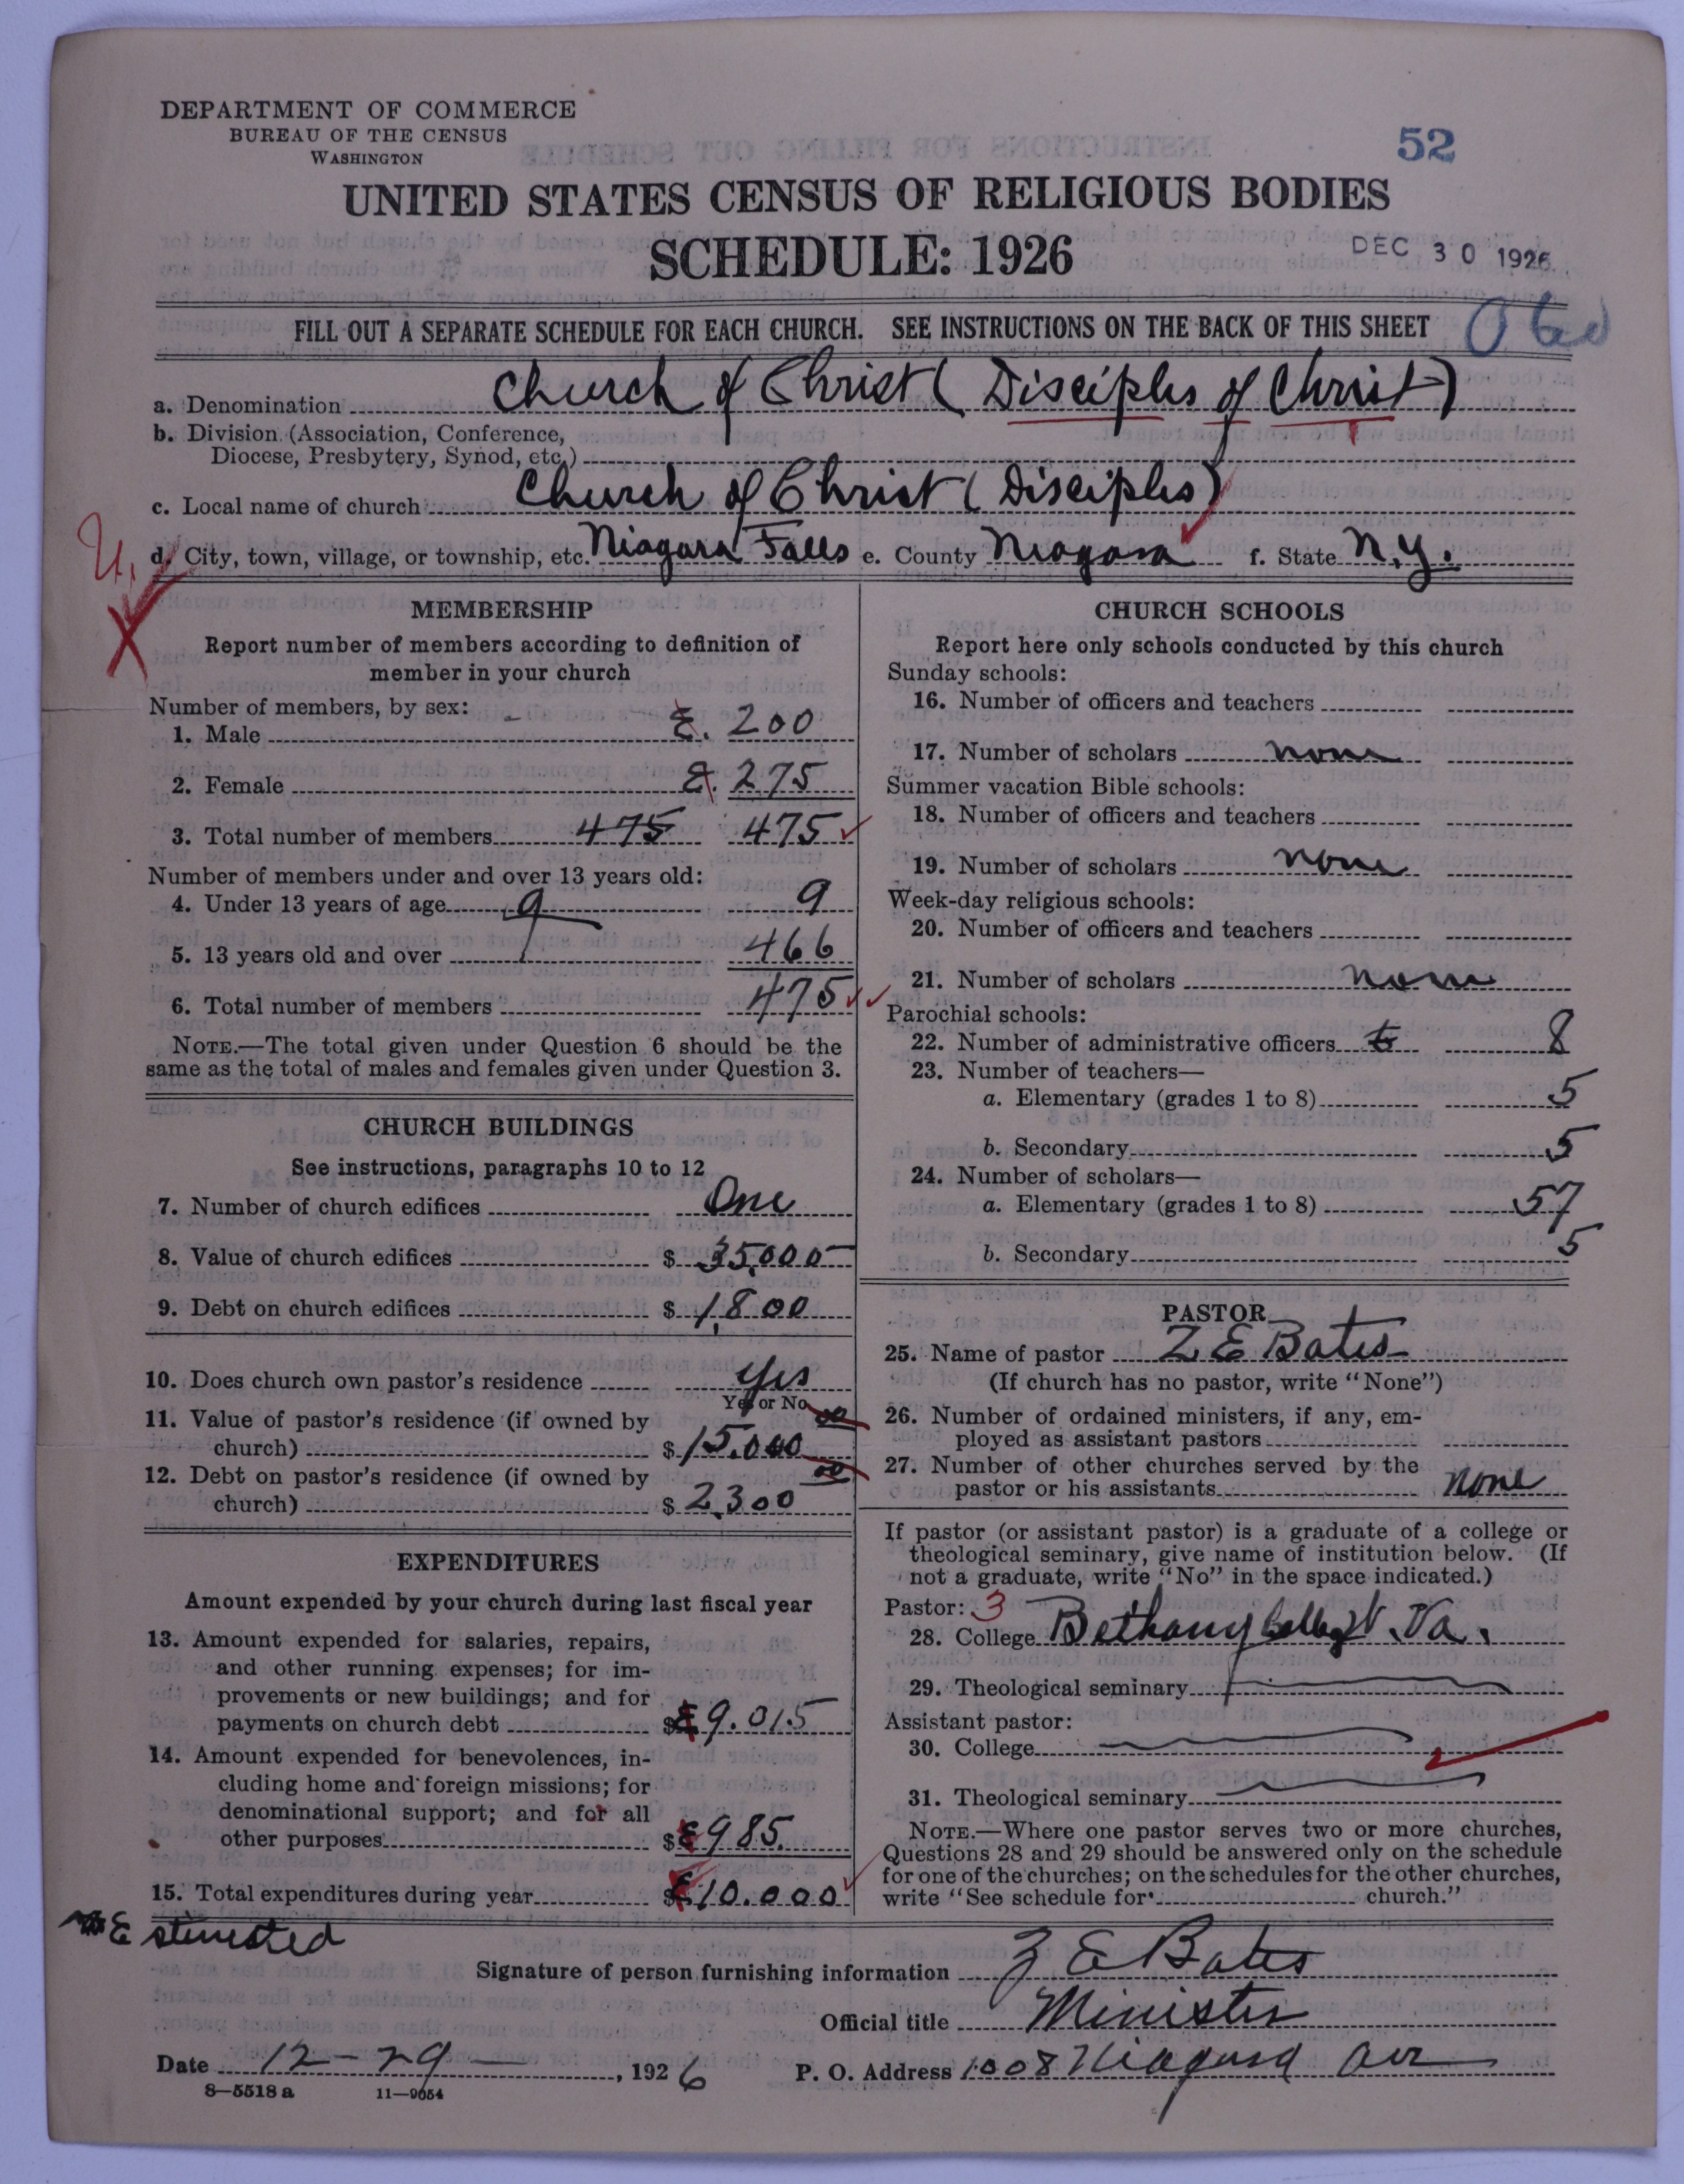 DEPARTMENT OF COMMERCE
BUREAU OF THE CENSUS
WASHINGTON
52
UNITED STATES CENSUS OF RELIGIOUS BODIES
SCHEDULE: 1926
DEC 30 1926
FILL OUT A SEPARATE SCHEDULE FOR EACH CHURCH. SEE INSTRUCTIONS ON THE BACK OF THIS SHEET
a. Denomination Church of Christ (Disciples of Christ)
b. Division (Association, Conference,
Diocese, Presbytery, Synod, etc.)
c. Local name of church Church of Christ (Disciples)
d. City, town, village, or township, etc. Niagara Falls e. County Niagara f. State N.Y.
MEMBERSHIP
Report number of members according to definition of
member in your church
Number of members, by sex:
1. Male E. 200
2. Female E. 275
3. Total number of members 475 475
Number of members under and over 13 years old:
4. Under 13 years of age 9 9
5. 13 years old and over 466
6. Total number of members 475
NOTE.—The total given under Question 6 should be the
same as the total of males and females given under Question 3.
CHURCH BUILDINGS
See instructions, paragraphs 10 to 12
7. Number of church edifices One
8. Value of church edifices $ 35,000
9. Debt on church edifices $ 1,800
10. Does church own pastor's residence Yes
Yes or No
11. Value of pastor's residence (if owned by
church) $ 15,000 00
12. Debt on pastor's residence (if owned by
church) $ 2,300 00
EXPENDITURES
Amount expended by your church during last fiscal year
13. Amount expended for salaries, repairs,
and other running expenses; for im-
provements or new buildings; and for
payments on church debt $ E 9.015
14. Amount expended for benevolences, in-
cluding home and foreign missions; for
denominational support; and for all
other purposes $ E 985.
15. Total expenditures during year $ E 10.000
Estimated
CHURCH SCHOOLS
Report here only schools conducted by this church
Sunday schools:
16. Number of officers and teachers
17. Number of scholars none
Summer vacation Bible schools:
18. Number of officers and teachers
19. Number of scholars none
Week-day religious schools:
20. Number of officers and teachers
21. Number of scholars none
Parochial schools:
22. Number of administrative officers 8
23. Number of teachers—
a. Elementary (grades 1 to 8) 5
b. Secondary 5
24. Number of scholars—
a. Elementary (grades 1 to 8) 57
b. Secondary 5
PASTOR
25. Name of pastor Z E Bates
(If church has no pastor, write "None")
26. Number of ordained ministers, if any, em-
ployed as assistant pastors
27. Number of other churches served by the
pastor or his assistants none
If pastor (or assistant pastor) is a graduate of a college or
theological seminary, give name of institution below. (If
not a graduate, write "No" in the space indicated.)
Pastor: 3
28. College Bethany College W. Va.
29. Theological seminary
Assistant pastor:
30. College
31. Theological seminary
NOTE.—Where one pastor serves two or more churches,
Questions 28 and 29 should be answered only on the schedule
for one of the churches; on the schedules for the other churches,
write "See schedule for church."
Signature of person furnishing information Z E Bates
Official title Minister
Date 12-29- , 1926 P. O. Address 1008 Niagara Ave
8—5518 a 11—9054